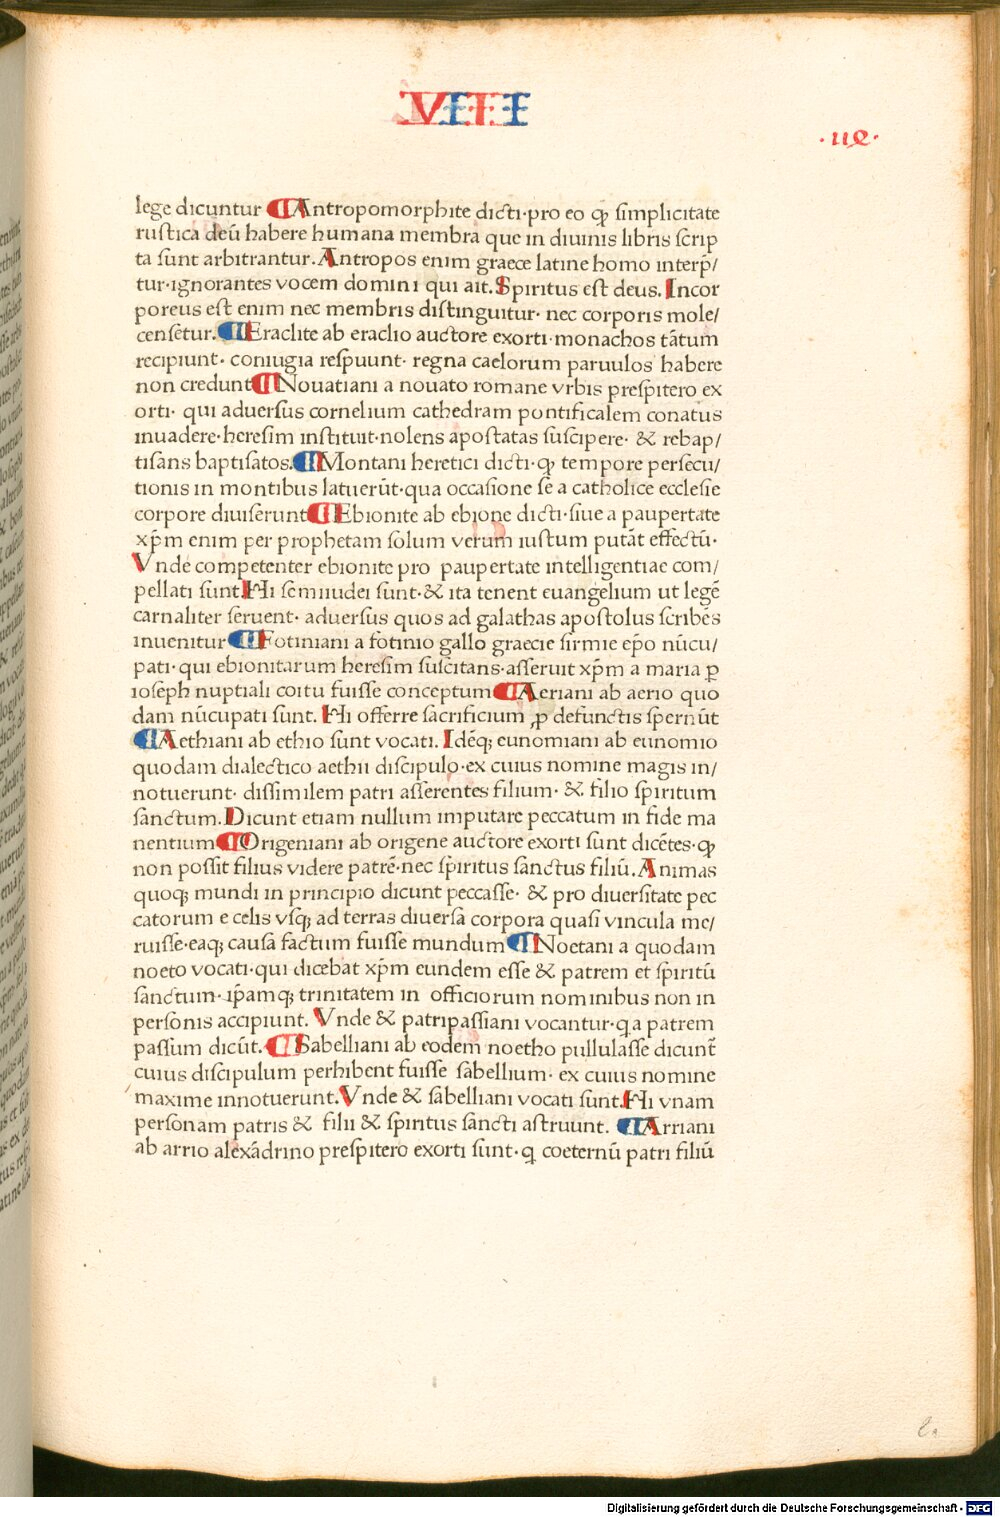 VIII
·119·
lege dicuntur ¶Antropomorphite dicti·pro eo ꝙ simplicitate
rustica deū habere humana membra que in diuinis libris scrip
ta sunt arbitrantur. Antropos enim graece latine homo interp̄/
tur·ignorantes vocem domini qui ait. Spiritus est deus. Incor
poreus est enim nec membris distinguitur· nec corporis mole/
censetur. ¶Eraclite ab eraclio auctore exorti·monachos tātum
recipiunt· coniugia respuunt· regna caelorum paruulos habere
non credunt ¶Nouatiani a nouato romane vrbis prespitero ex
orti· qui aduersus cornelium cathedram pontificalem conatus
inuadere·heresim instituit·nolens apostatas suscipere· & rebap/
tisans baptisatos. ¶Montani heretici dicti·ꝙ tempore persecu/
tionis in montibus latuerūt·qua occasione se a catholice ecclesie
corpore diuiserunt ¶Ebionite ab ebione dicti·siue a paupertate
xp̄m enim per prophetam solum verum iustum putāt effectū·
Vnde competenter ebionite pro paupertate intelligentiae com/
pellati sunt Hi semiiudei sunt·& ita tenent euangelium ut legē
carnaliter seruent· aduersus quos ad galathas apostolus scribēs
inuenitur ¶Fotiniani a fotinio gallo graecie sirmie ep̄o nūcu/
pati·qui ebionitarum heresim suscitans·asseruit xp̄m a maria ꝑ
ioseph nuptiali coitu fuisse conceptum ¶Aeriani ab aerio quo
dam nūcupati sunt. Hi offerre sacrificium ꝓ defunctis spernūt
¶Aethiani ab ethio sunt vocati. Idēqꝫ eunomiani ab eunomio
quodam dialectico aethii discipulo·ex cuius nomine magis in/
notuerunt· dissimilem patri asserentes filium· & filio spiritum
sanctum. Dicunt etiam nullum imputare peccatum in fide ma
nentium ¶Origeniani ab origene auctore exorti sunt dicētes·ꝙ
non possit filius videre patrē·nec spiritus sanctus filiū. Animas
quoqꝫ mundi in principio dicunt peccasse· & pro diuersitate pec
catorum e celis vsqꝫ ad terras diuersa corpora quasi vincula me/
ruisse·eaqꝫ causa factum fuisse mundum ¶Noetani a quodam
noeto vocati·qui dicebat xp̄m eundem esse & patrem et spiritū
sanctum·ip̄amqꝫ trinitatem in officiorum nominibus non in
personis accipiunt. Vnde & patripassiani vocantur·q̄a patrem
passum dicūt. ¶Sabelliani ab eodem noetho pullulasse dicunt̄
cuius discipulum perhibent fuisse sabellium· ex cuius nomine
maxime innotuerunt. Vnde & sabelliani vocati sunt. Hi vnam
personam patris & filii & spiritus sancti astruunt. ¶Arriani
ab arrio alexādrino prespitero exorti sunt·q̄ coeternū patri filiū
Digitalisierung gefördert durch die Deutsche Forschungsgemeinschaft - DFG